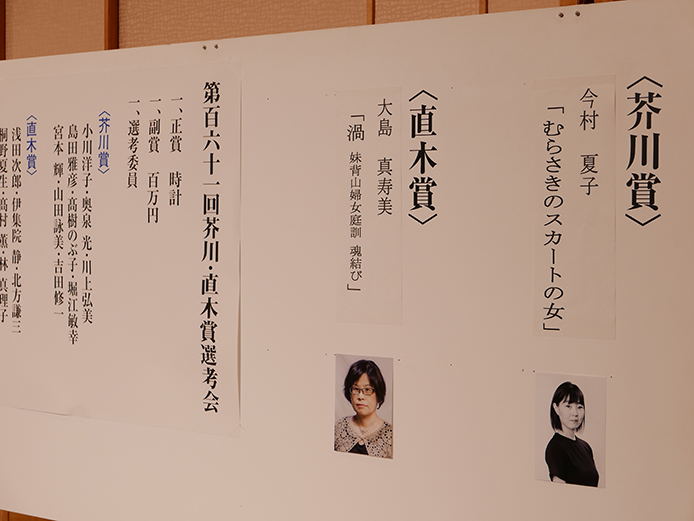 〈芥川賞〉
今村 夏子
「むらさきのスカートの女」
〈直木賞〉
大島 真寿美
「渦 妹背山婦女庭訓 魂結び」
第百六十一回芥川・直木賞選考会
一、正賞 時計
一、副賞 百万円
一、選考委員
〈芥川賞〉
小川洋子・奥泉 光・川上弘美
島田雅彦・髙樹のぶ子・堀江敏幸
宮本 輝・山田詠美・吉田修一
〈直木賞〉
浅田次郎・伊集院 静・北方謙三
桐野夏生・髙村 薫・林 真理子